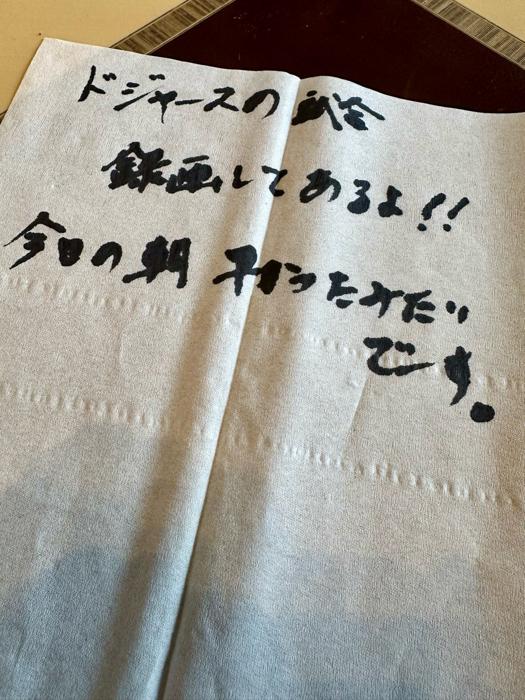 ドジャースの試合
録画してあるよ!!
今日の朝 かったみたい
です。